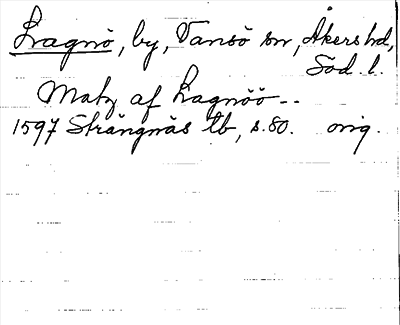 Lagnö, by, Vansö sn, Åkers hd,
Söd. l.
Matz af Lagnöö--
1597 Strängnäs tb, s.80. orig.